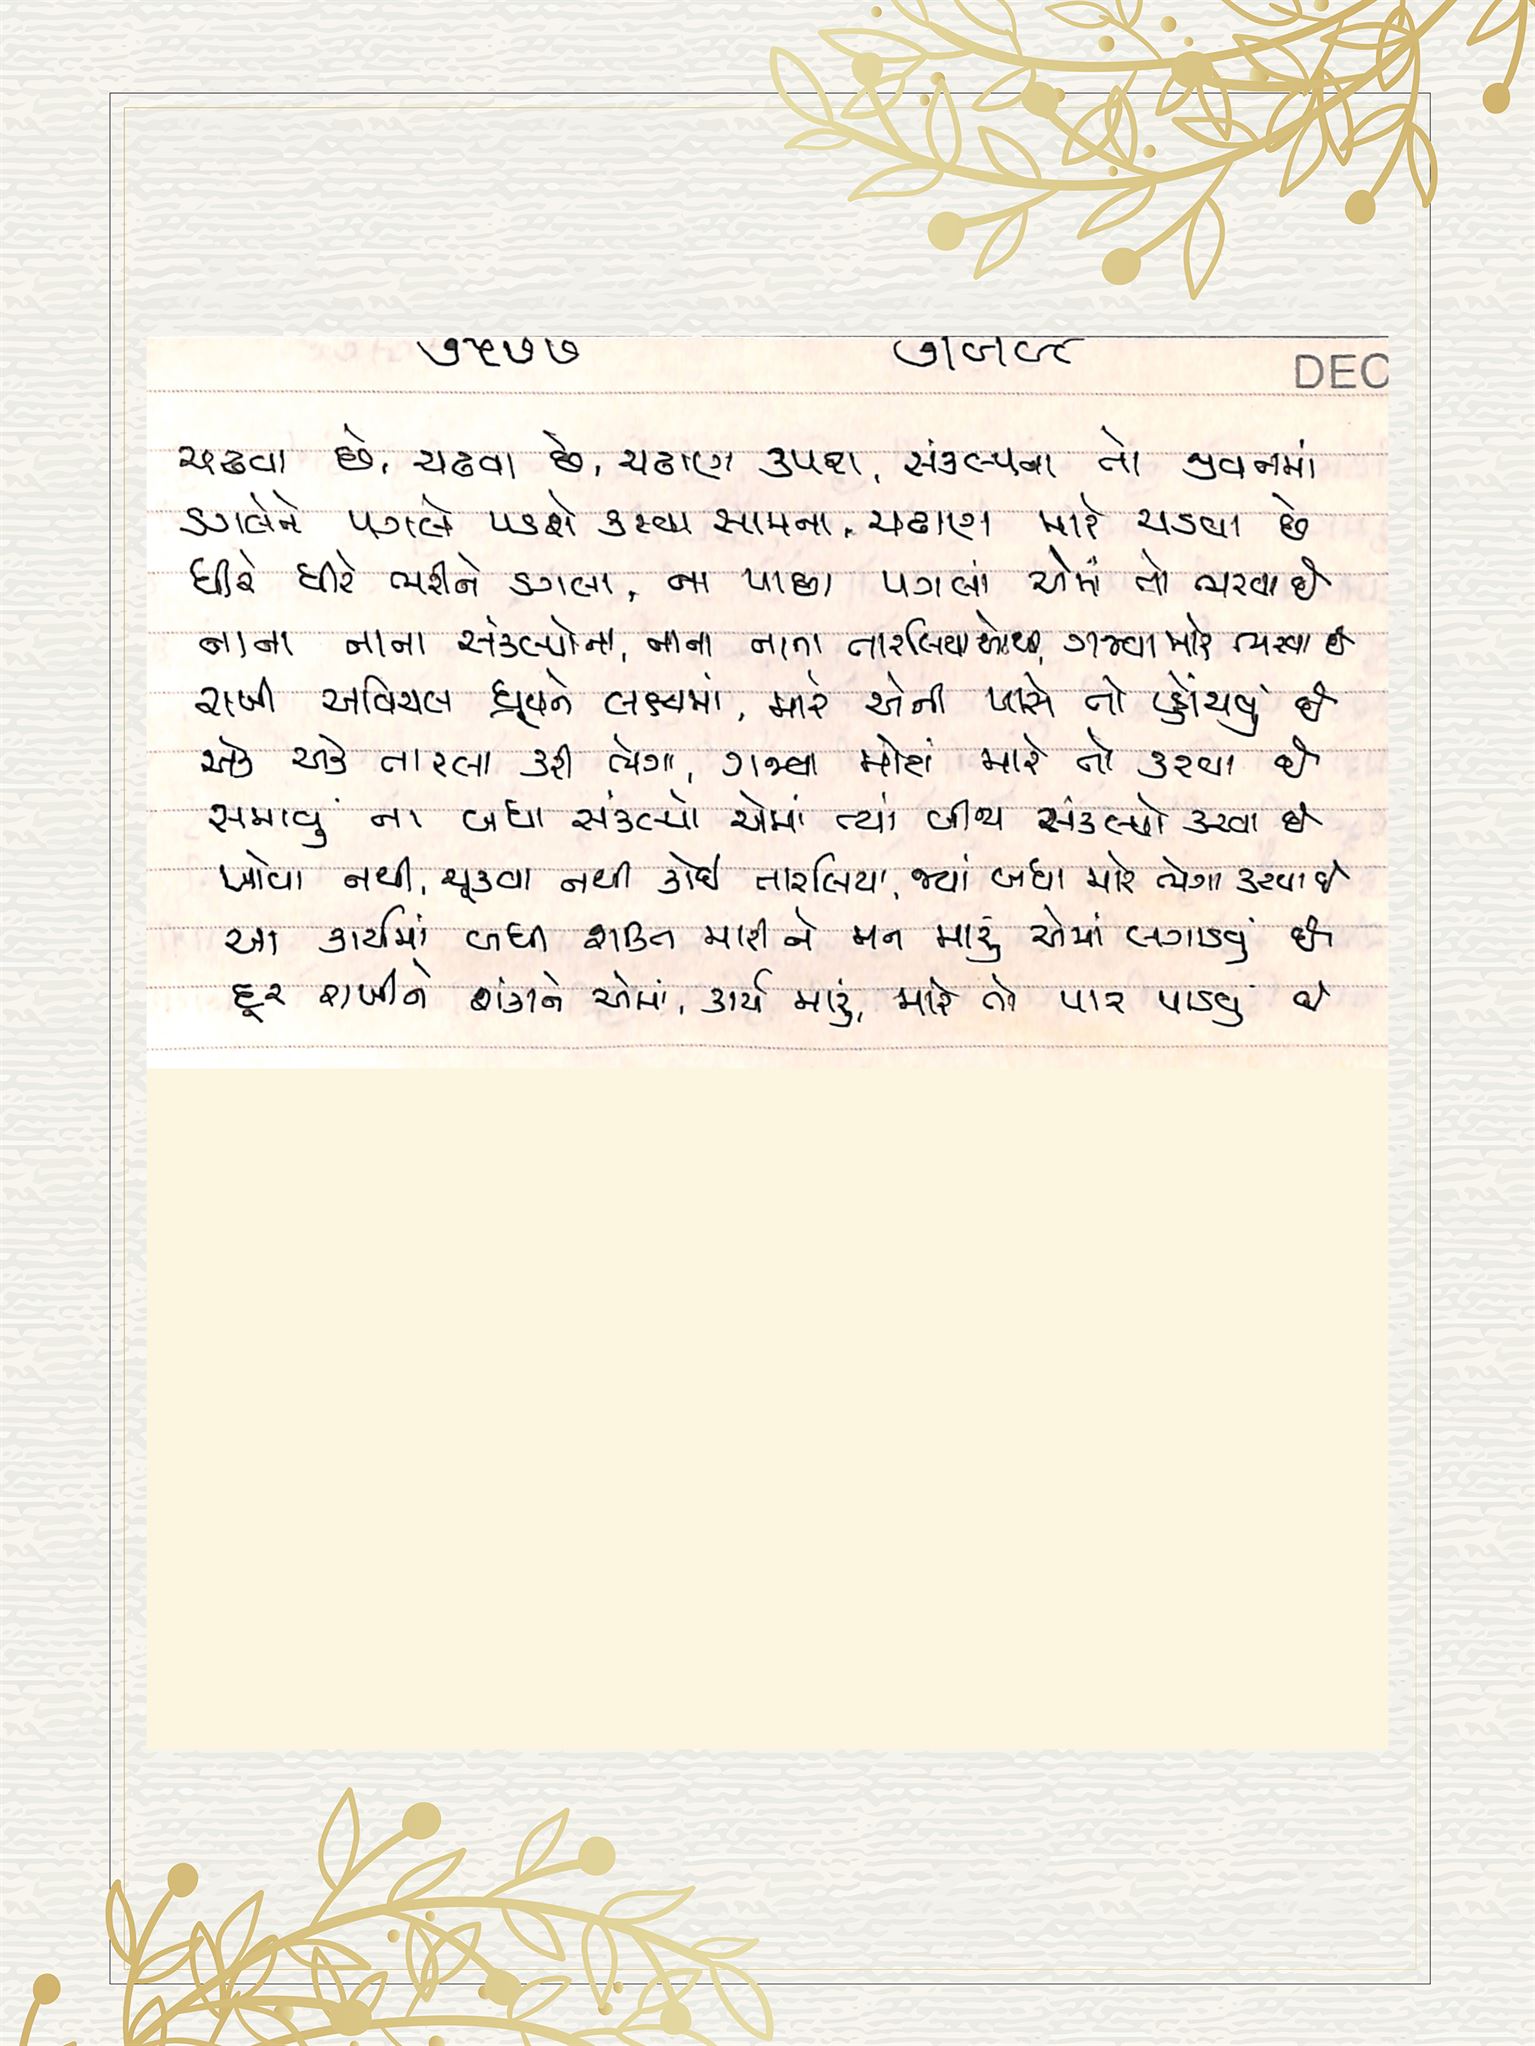 ૭૫૭૭ ગઝલ DEC
ચઢવા છે, ચઢવા છે, ચઢાણ ઉપરા, સંકલ્પના તો જીવનમાં
ડગલેને પગલે પડશે કરવા સામના, ચઢાણ મારે ચડવા છે
ધીરે ધીરે ભરીને ડગલા, ના પાછા પગલાં એમાં તો ભરવા છે
નાના નાના સંકલ્પોના, નાના નાના તારલિયાઓથી, ગજવા મારે ભરવા છે
રાખી અવિચલ ધ્રૂવને લક્ષ્યમાં, મારે એની પાસે તો પ્હોંચવું છે
એક એક તારલા કરી ભેગા, ગજવા મોટાં મારે તો કરવા છે
સમાવું ના બધા સંકલ્પો એમાં ત્યાં બીજા સંકલ્પો કરવા છે
ખોવા નથી, ચૂકવા નથી કોઈ તારલિયા, જ્યાં બધા મારે ભેગા કરવા છે
આ કાર્યમાં બધી શક્તિ મારીને મન મારું એમાં લગાડવું છે
દૂર રાખીને શંકાને એમાં, કાર્ય મારું, મારે તો પાર પાડવું છે